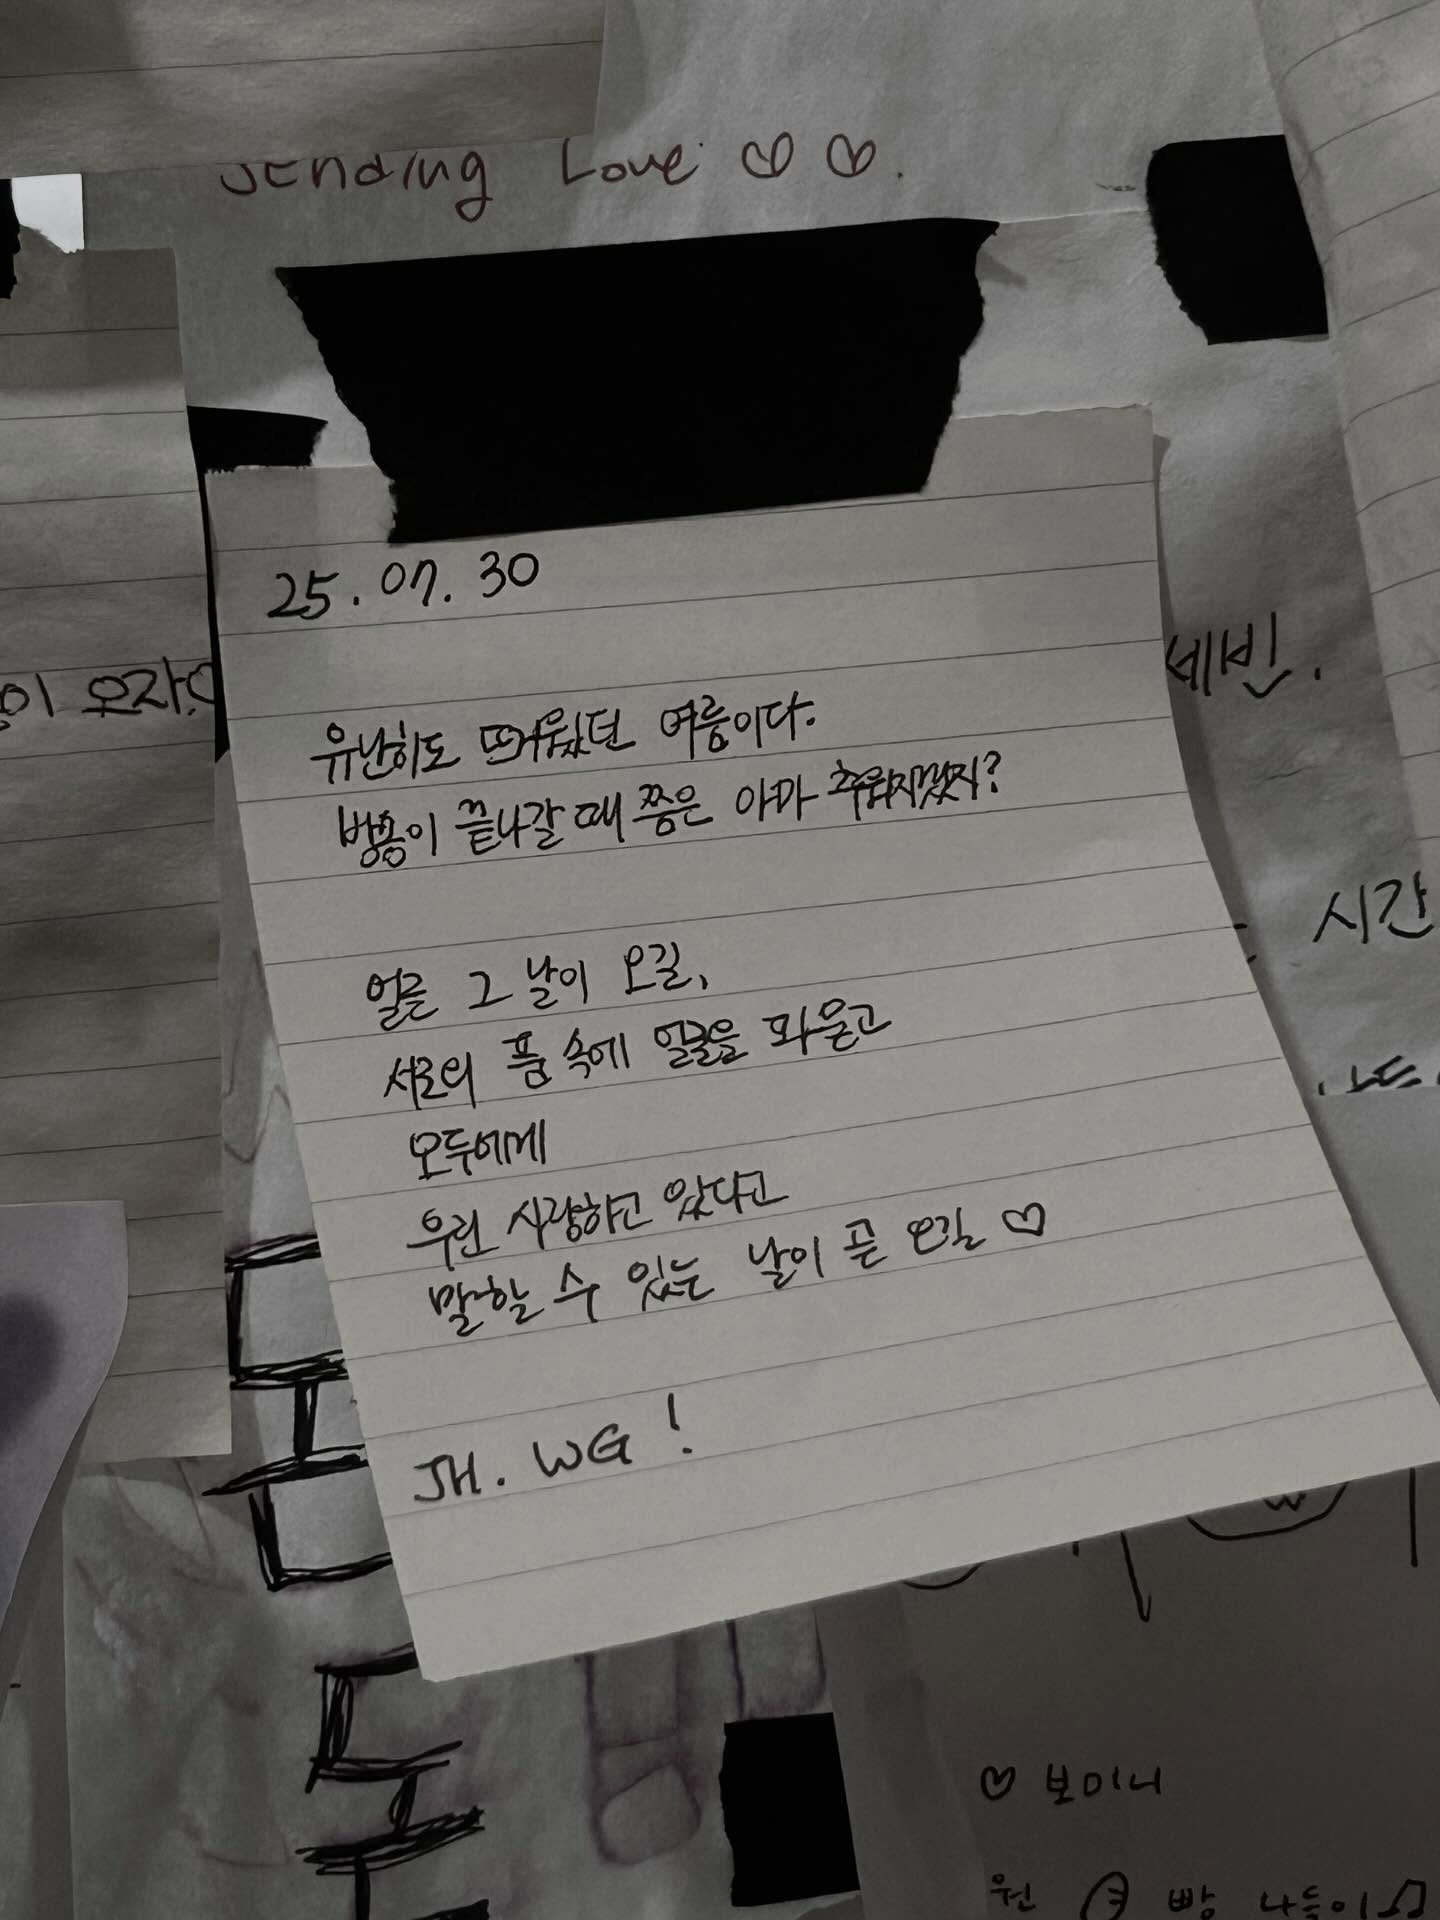 Sending Love ♡ ♡.
25.07.30
유난히도 뜨거웠던 여름이다.
방송이 끝나갈 때 쯤은 아마 추워지겠지?
얼른 그 날이 오길,
서로의 품 속에 얼굴을 파묻고
모두에게
우린 사랑하고 있다고
말할 수 있는 날이 곧 오길 ♡
JH. WG !
이 오자♡
세빈.
시간
♡ 보미니
원 빵 나들이♫